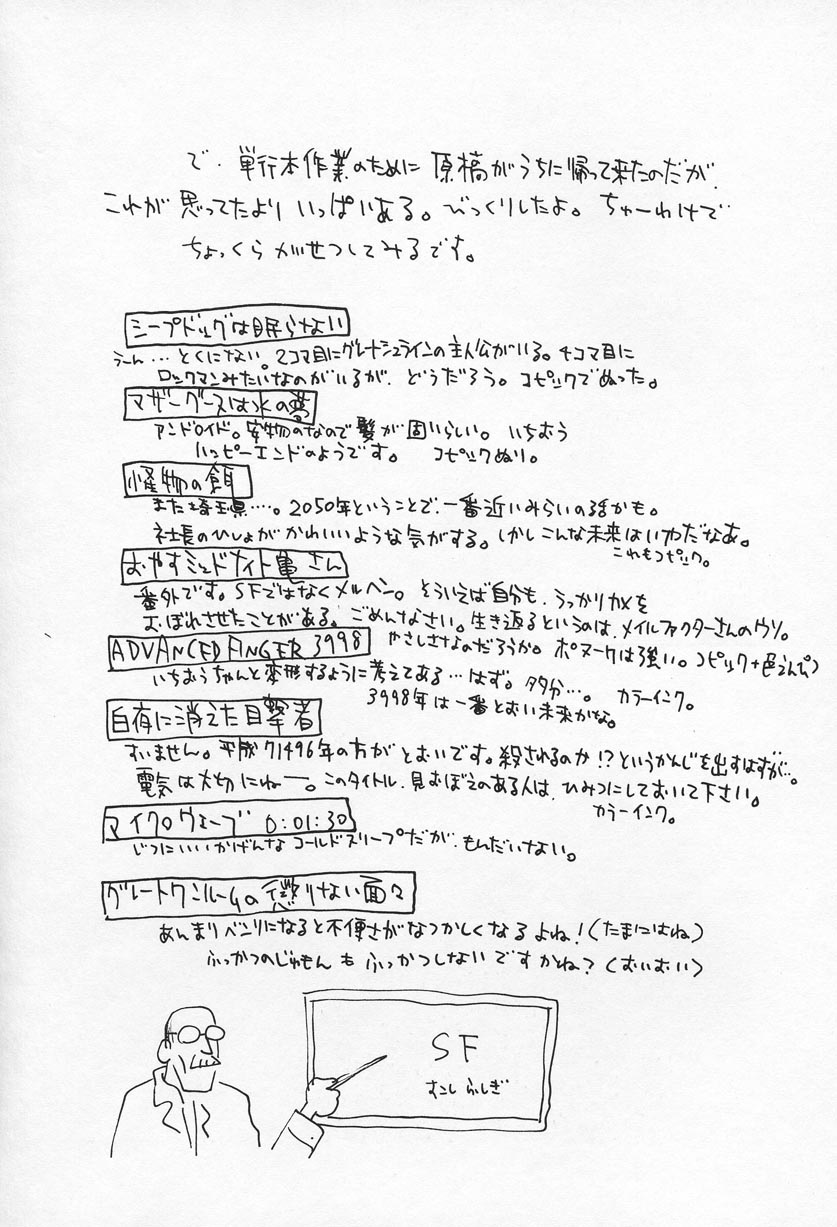 で、単行本作業のために 原稿がうちに帰って来たのだが、
これが 思ってたより いっぱいある。びっくりしたよ。ちゅーわけで
ちょっくら かせつしてみるです。
シープドッグは眠らない
うーん…とくにない。2コマ目にグレートシュラインの主人公がいる。4コマ目に
ロックマンみたいなのがいるが、どうだろう。コピックでぬった。
マザーグースは氷の夢
アンドロイド。安物のなので髪が固いらしい。いちおう
ハッピーエンドのようです。 コピックぬり。
怪物の餌
また埼玉県…。2050年ということで、一番近いみらいの話かも。
社長のひしょがかわいいような気がする。しかしこんな未来はいやだなあ。
これもコピック。
おやすミッドナイト亀さん
番外です。SFではなくメルヘン。そういえば自分も、うっかりカメを
おぼれさせたことがある。ごめんなさい。生き返るというのは、メイルファクターさんのウソ。
やさしさなのだろうか。ポヌークは強い。コピック+色えんぴつ
ADVANCED FINGER 3998
いちおうちゃんと変形するように考えてある…はず。多分…。 カラーインク。
3998年は一番とおい未来かな。
白夜に消えた目撃者
すいません。平成71496年の方がとおいです。殺されるのか!?というかんじを出すはずが…。
電気は大切にねー。このタイトル、見おぼえのある人は、ひみつにしておいて下さい。
カラーインク。
マイクロウェーブ 0:01:30
じつにいいかげんなコールドスリープだが、もんだいない。
グレートワンルームの懲りない面々
あんまりベンリになると不便さがなつかしくなるよね!(たまにはね)
ふっかつのじゅもんもふっかつしないですかね?(むいむい)
SF
すこし ふしぎ